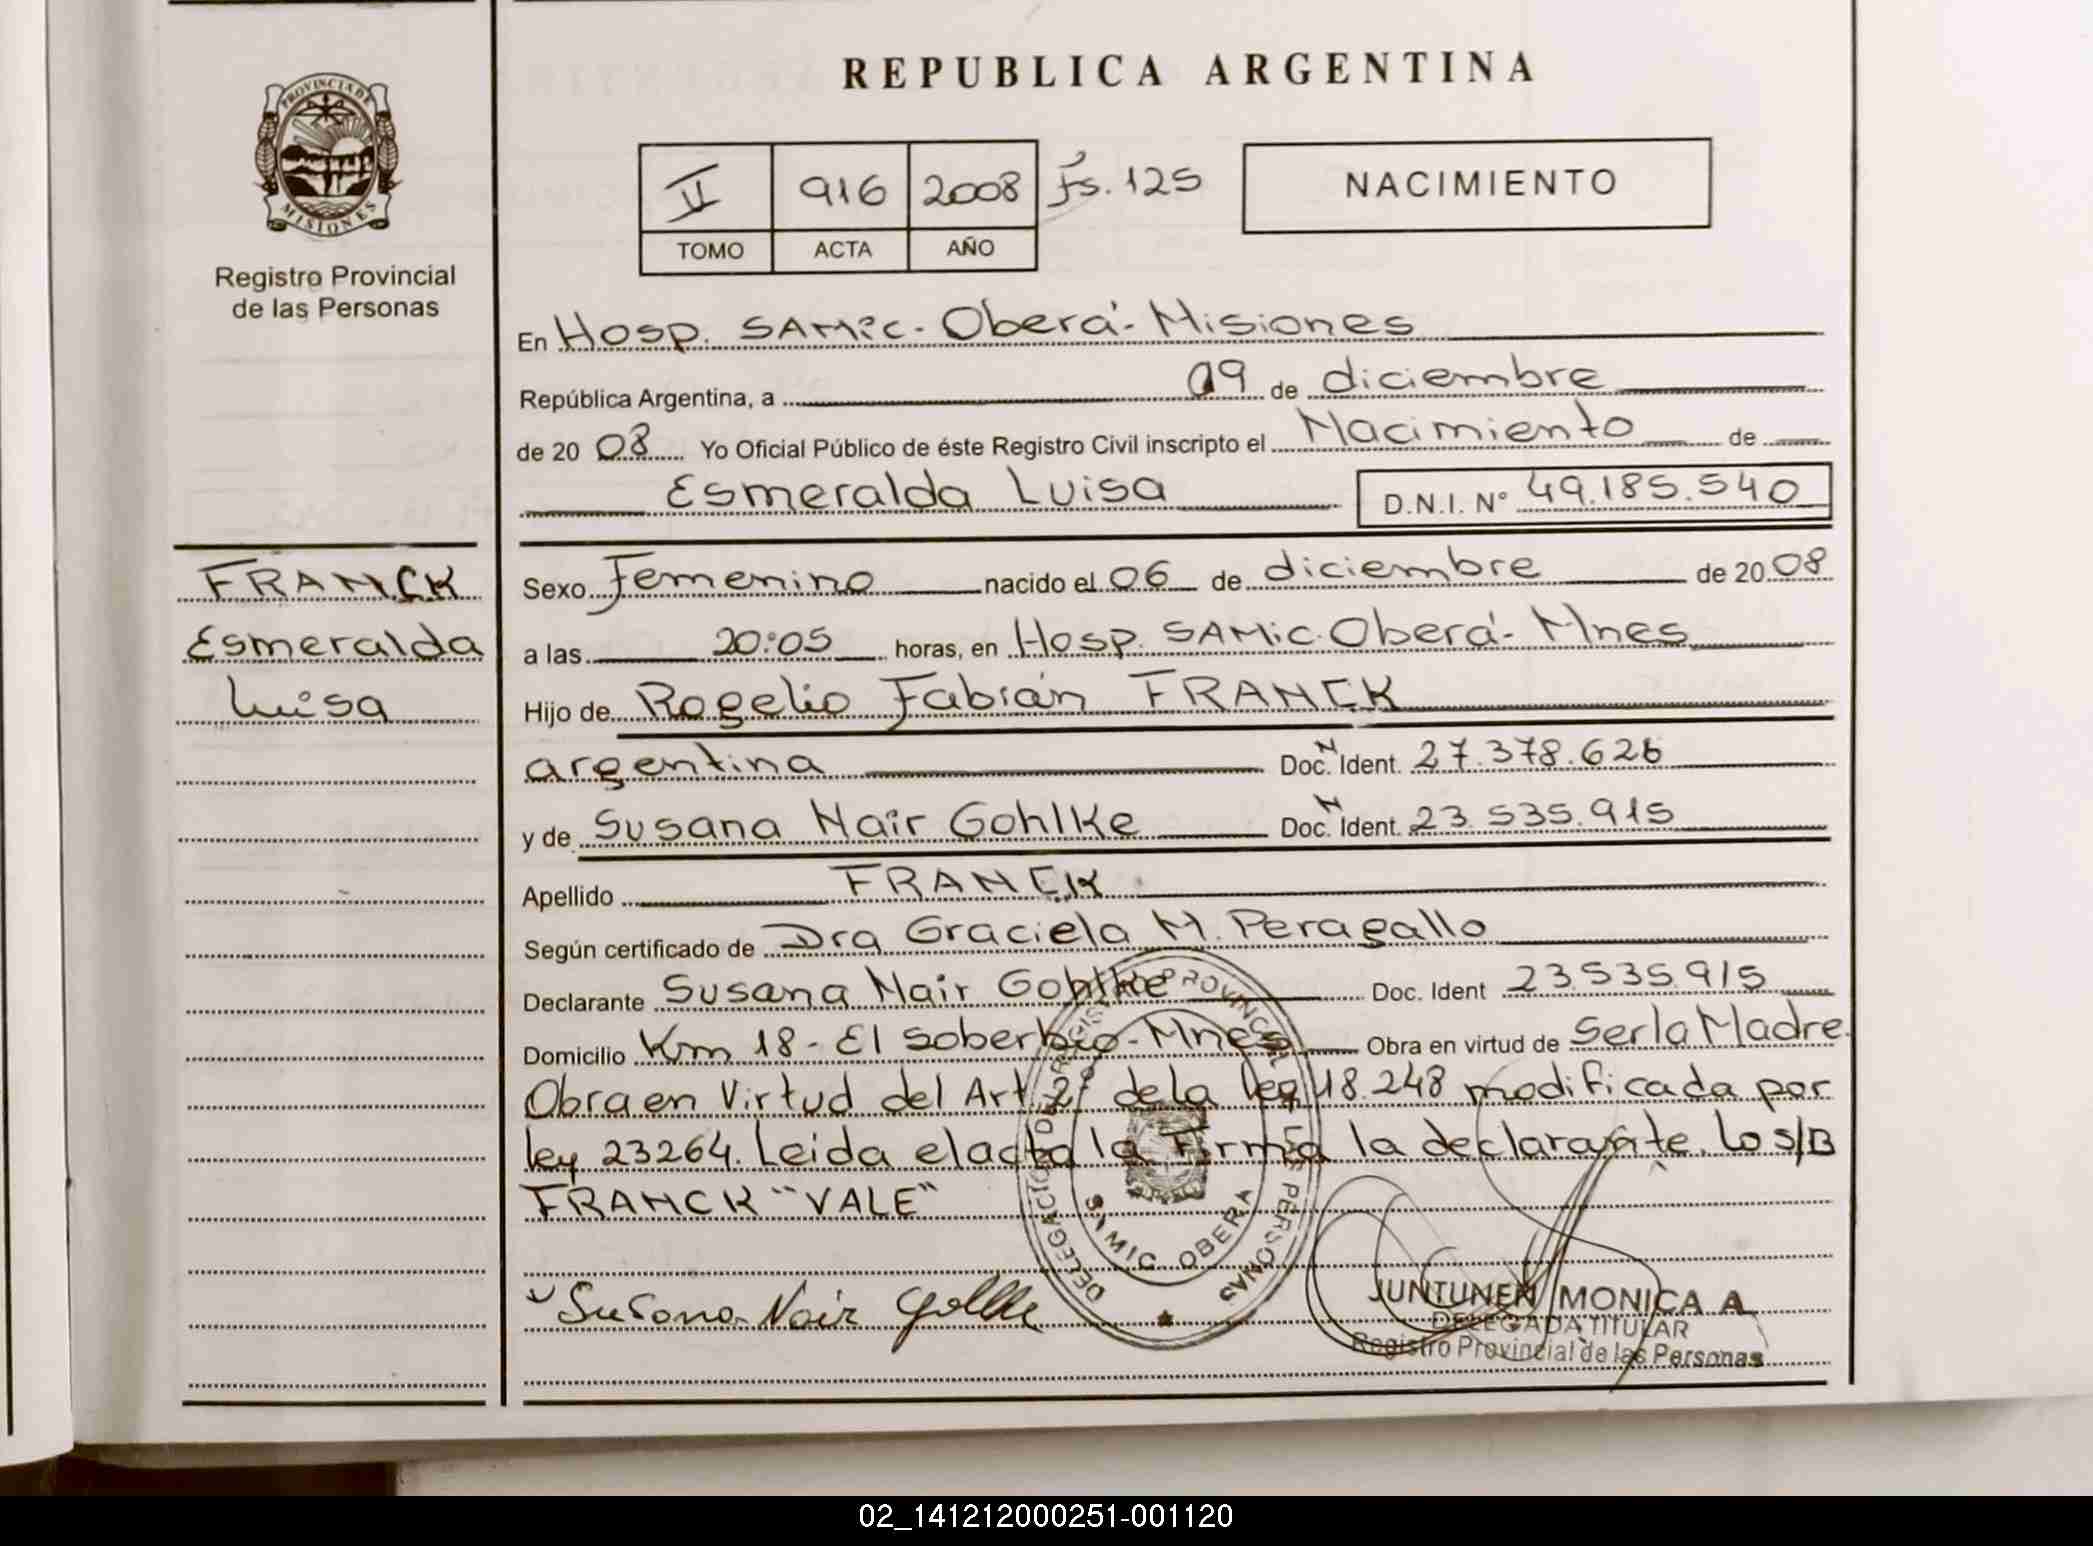 PROVINCIA DE
MISIONES
Registro Provincial
de las Personas
FRANCK
Esmeralda
Luisa
REPUBLICA ARGENTINA
II 916 2008 Fs. 125
TOMO ACTA AÑO
NACIMIENTO
En Hosp. SAMic - Oberá - Misiones
República Argentina, a 09 de diciembre
de 20 08 Yo Oficial Público de éste Registro Civil inscripto el Nacimiento de
Esmeralda Luisa D.N.I. N° 49.185.540
Sexo Femenino nacido el 06 de diciembre de 20 08
a las 20:05 horas, en Hosp. SAMic. Oberá - Mnes
Hijo de Rogelio Fabián FRANCK
argentina Doc. N Ident. 27.378.626
y de Susana Nair Gohlke Doc. N Ident. 23.535.915
Apellido FRANCK
Según certificado de Dra Graciela M. Peragallo
Declarante Susana Nair Gohlke Doc. Ident 23.535.915
Domicilio Km 18 - El Soberbio - Mnes Obra en virtud de Ser la Madre.
Obra en Virtud del Art. 2° de la ley 18.248 modificada por
ley 23264. Leida el acta la Firma la declarante. Lo s/B
FRANCK "VALE"
Susana Nair Gohlke
DELEGACION DEL REGISTRO PROVINCIAL DE LAS PERSONAS
SAMIC OBERA
JUNTUNEN MONICA A
DELEGADA TITULAR
Registro Provincial de las Personas
02_141212000251-001120